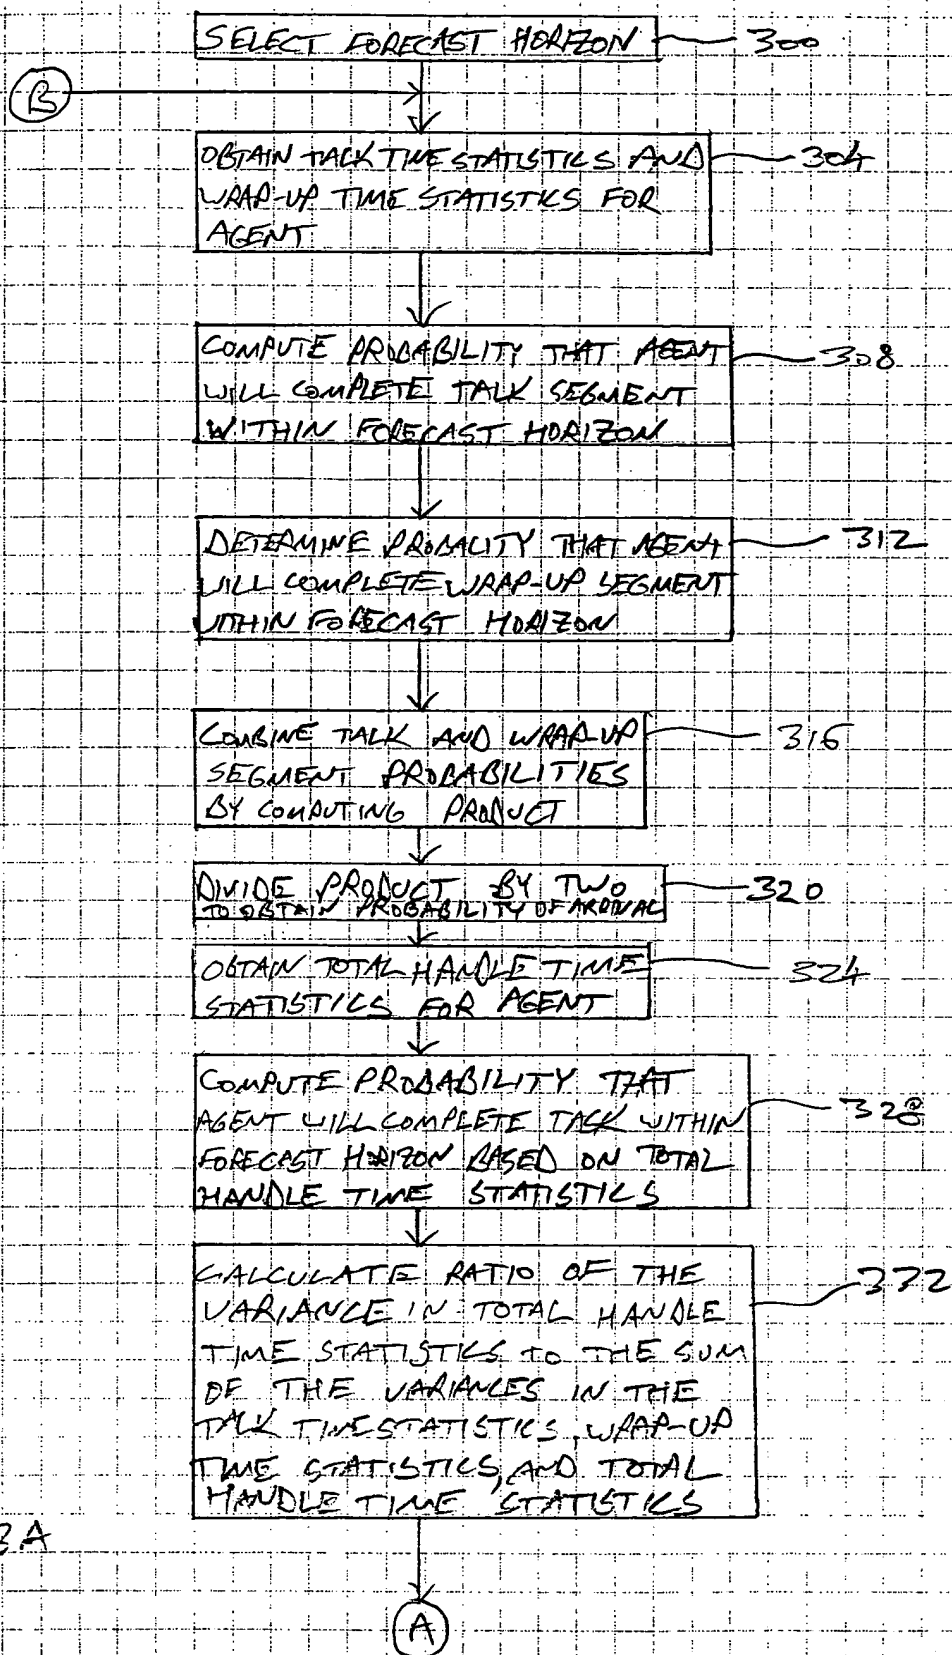 SELECT FORECAST HORIZON 300
B
OBTAIN TALK TIME STATISTICS AND 304
WRAP-UP TIME STATISTICS FOR
AGENT
COMPUTE PROBABILITY THAT AGENT 308
WILL COMPLETE TALK SEGMENT
WITHIN FORECAST HORIZON
DETERMINE PROBALITY THAT AGENT 312
WILL COMPLETE WRAP-UP SEGMENT
WITHIN FORECAST HORIZON
COMBINE TALK AND WRAP-UP 316
SEGMENT PROBABILITIES
BY COMPUTING PRODUCT
DIVIDE PRODUCT BY TWO 320
TO OBTAIN PROBABILITY OF ARRIVAL
OBTAIN TOTAL HANDLE TIME 324
STATISTICS FOR AGENT
COMPUTE PROBABILITY THAT
AGENT WILL COMPLETE TALK WITHIN 328
FORECAST HORIZON BASED ON TOTAL
HANDLE TIME STATISTICS
CALCULATE RATIO OF THE 332
VARIANCE IN TOTAL HANDLE
TIME STATISTICS TO THE SUM
OF THE VARIANCES IN THE
TALK TIME STATISTICS, WRAP-UP
TIME STATISTICS, AND TOTAL
HANDLE TIME STATISTICS
3A
A